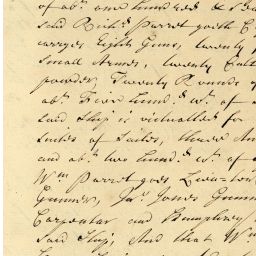 of abt. one hundred &
said Richd. Parret goeth
carryes Eight Guns, twenty
Small Armes, twenty
powder, Twenty Rounds of
abt. Four hund.d wt. of
said Ship is victualled for
suites of Sailes, three
and abt. two hund.d wt. of
Wm. Parret goes
Gunner, Jas. Jones
Carpenter and Humphrey
said Ship, And that Wm.